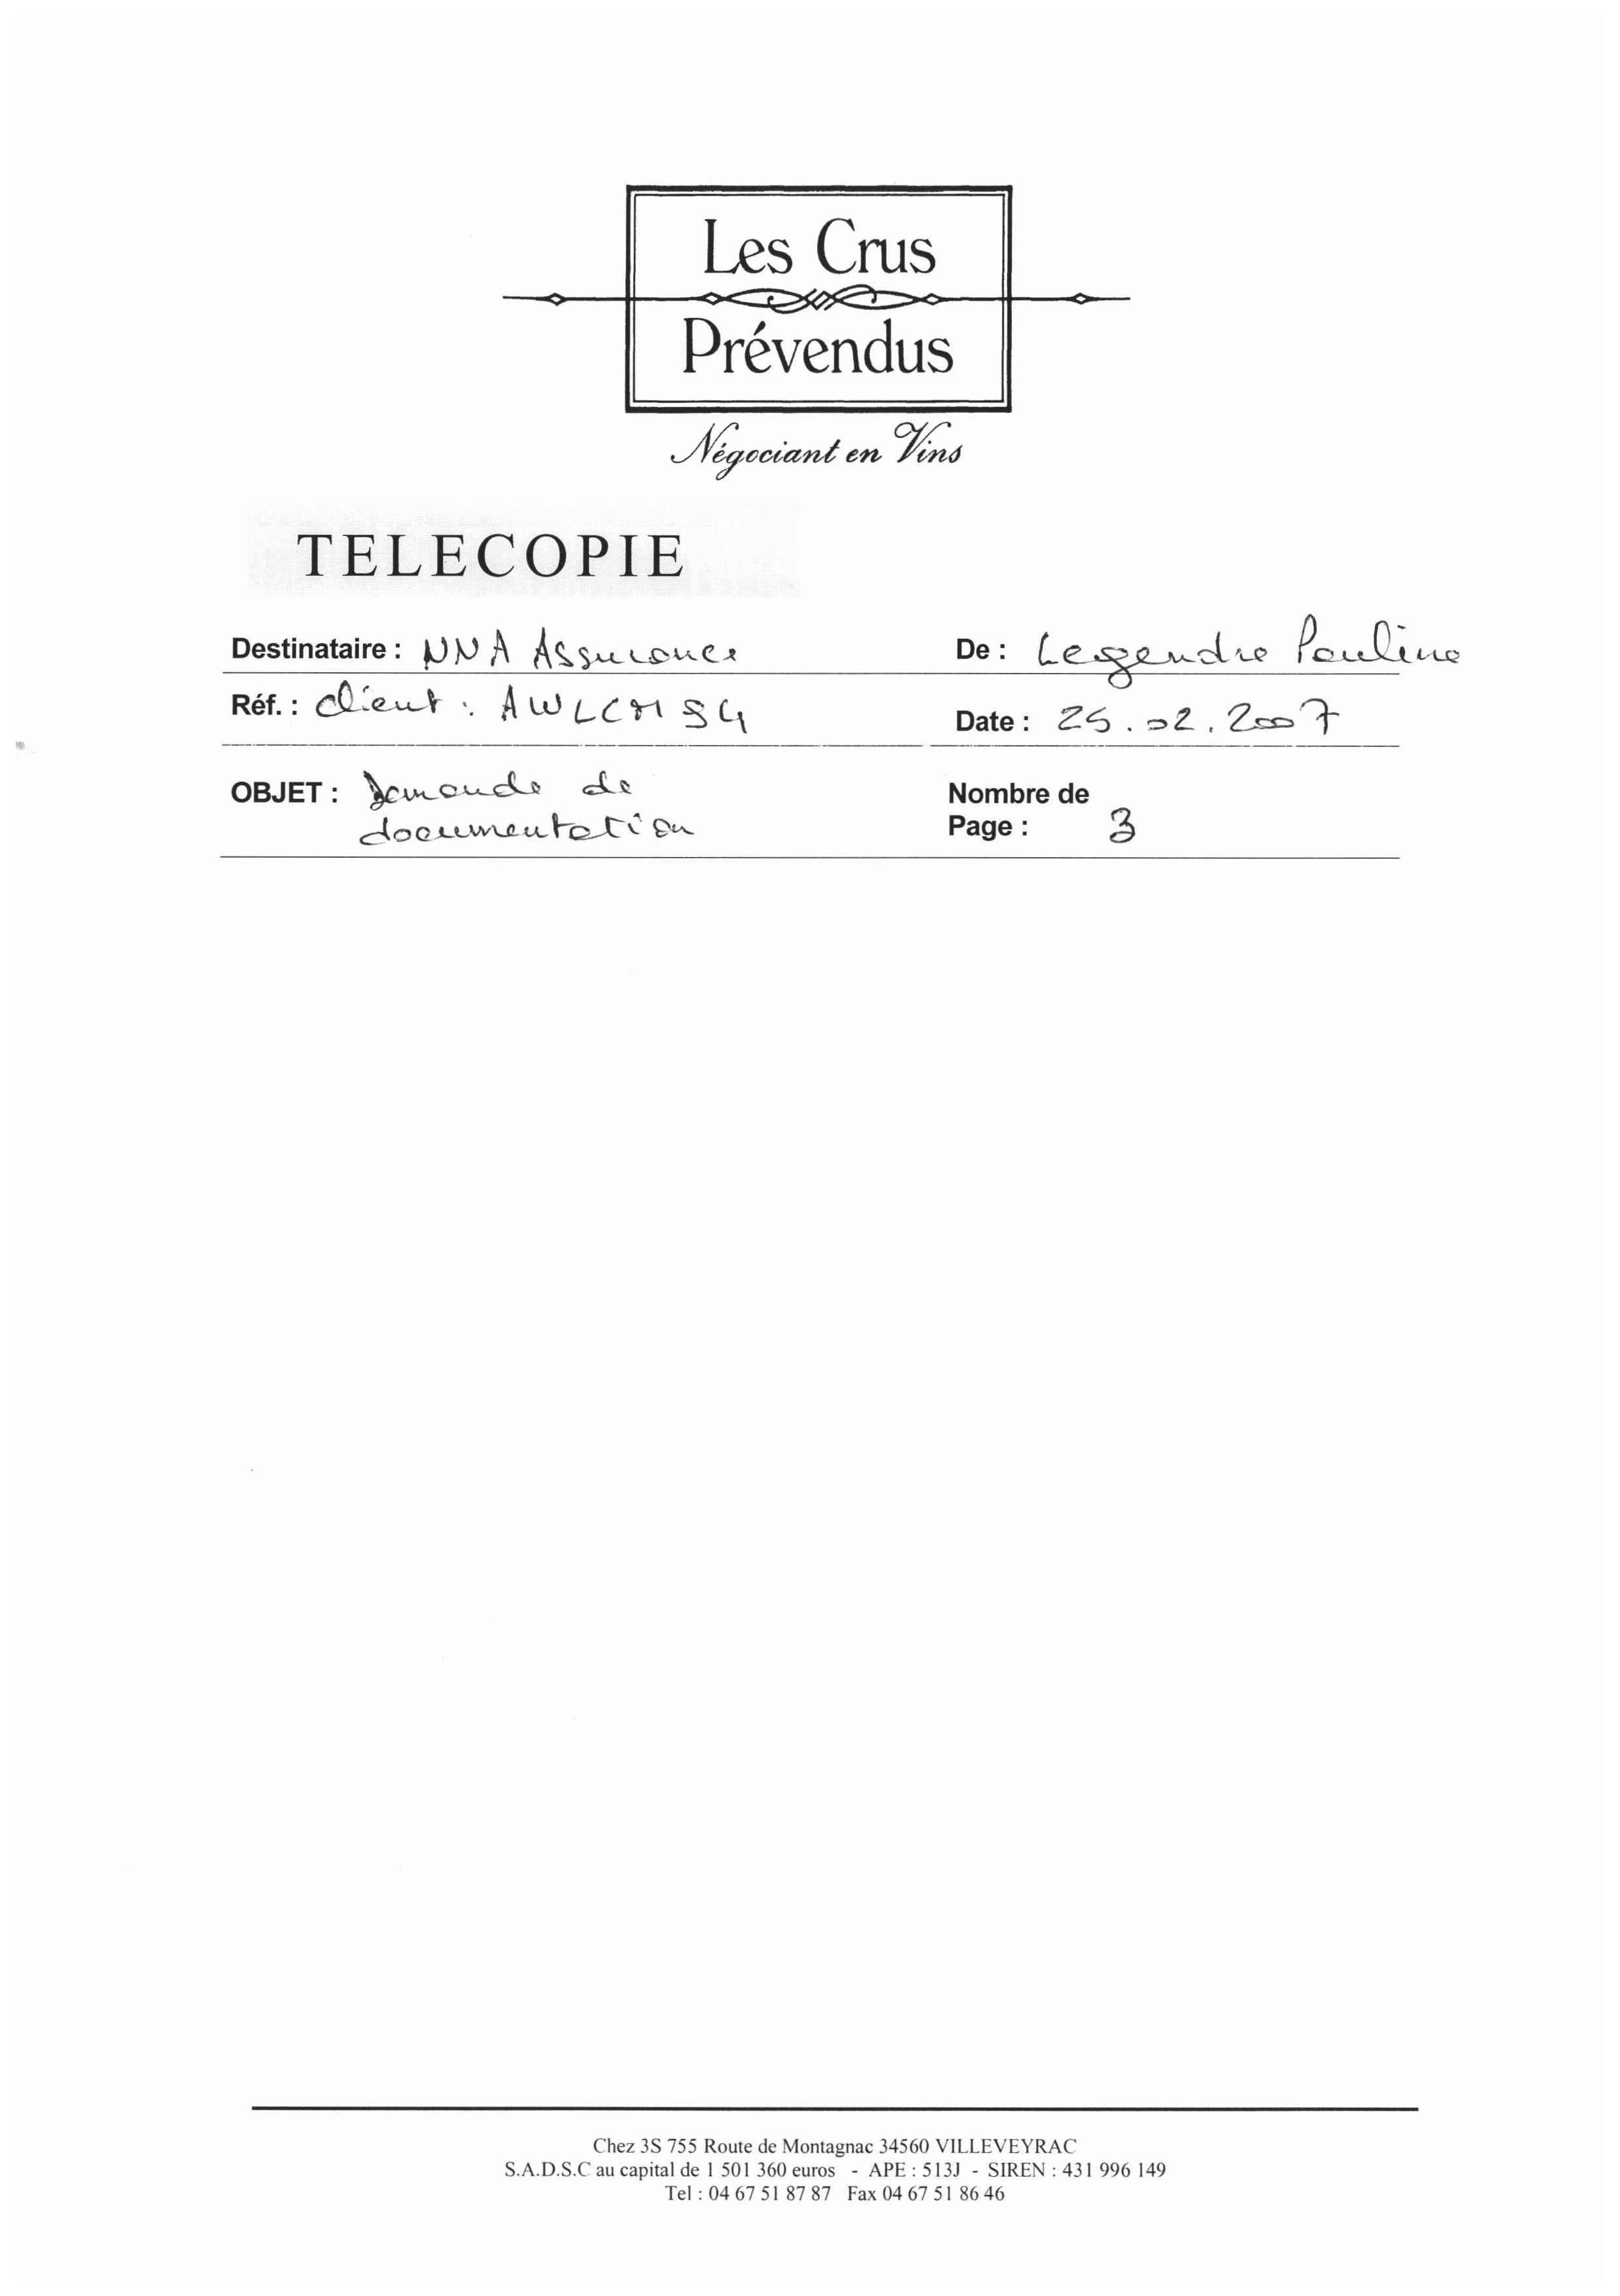 Les Crus
Prévendus
Négociant en Vins
TELECOPIE
Destinataire : NNA Assurance De : Legendre Pauline
Réf. : client : AWLCM94 Date : 25.02.2007
OBJET : Demande de Nombre de
documentation Page : 3
Chez 3S 755 Route de Montagnac 34560 VILLEVEYRAC
S.A.D.S.C au capital de 1 501 360 euros - APE : 513J - SIREN : 431 996 149
Tel : 04 67 51 87 87 Fax 04 67 51 86 46